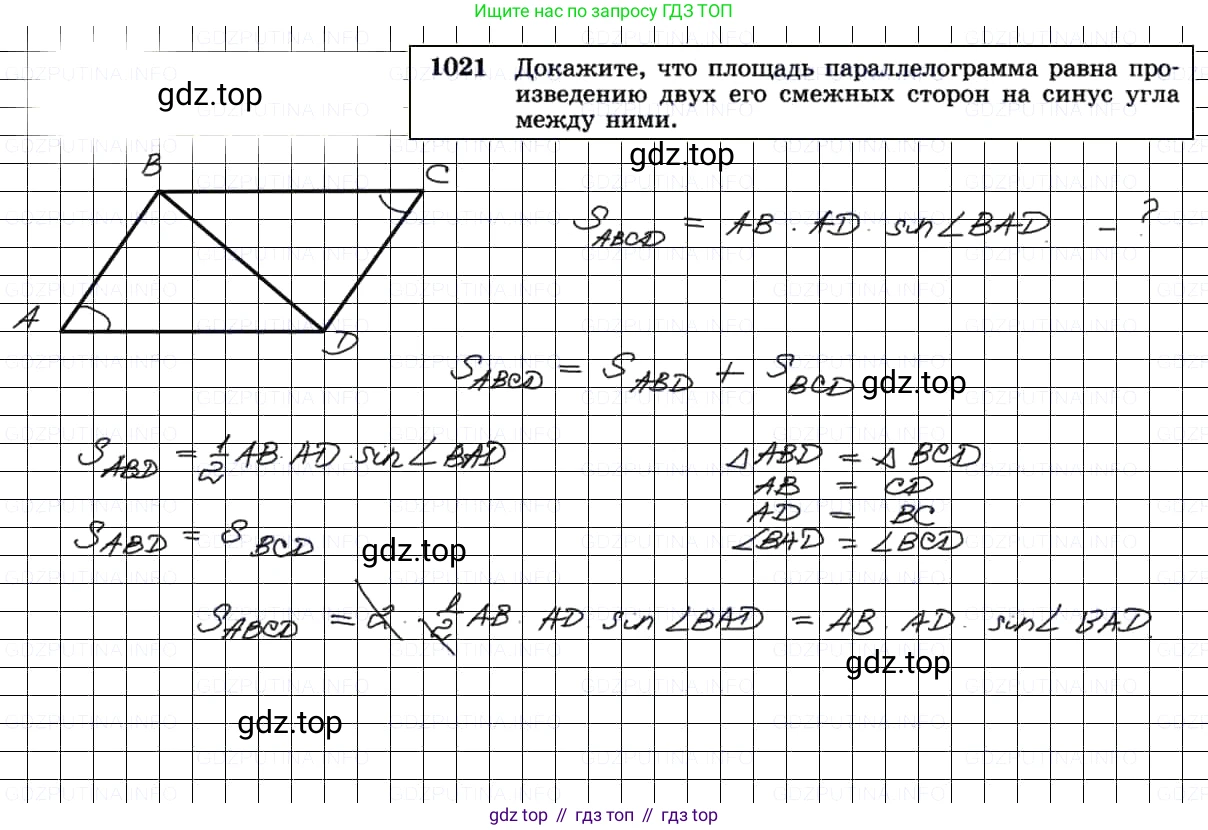 Ищите нас по запросу ГДЗ ТОП
1021 Докажите, что площадь параллелограмма равна про-
изведению двух его смежных сторон на синус угла
между ними.
gdz.top
gdz.top
B
C
A
D
S_ABCD = AB · AD · sin∠BAD - ?
S_ABCD = S_ABD + S_BCD
gdz.top
S_ABD = 1/2 AB · AD · sin∠BAD
△ABD = △BCD
AB = CD
AD = BC
∠BAD = ∠BCD
S_ABD = S_BCD
gdz.top
S_ABCD = 2 · 1/2 AB · AD · sin∠BAD = AB · AD · sin∠BAD.
gdz.top
gdz.top
GDZPUTINA.INFO
gdz top // гдз топ // гдз top